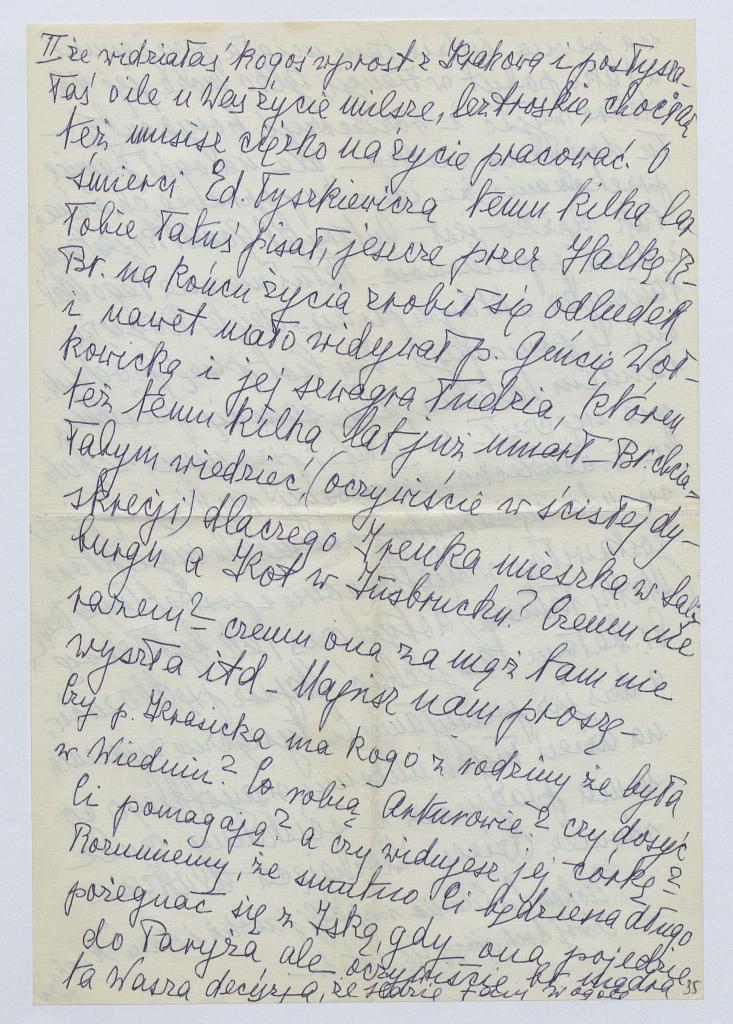 II że widziałaś kogoś wprost z Krakowa i posłysza-
łaś o ile u Was życie milsze, beztroskie, chociaż
też musisz ciężko na życie pracować. O
śmierci Ed. Tyszkiewicza temu kilka lat
Tobie Tatuś pisał, jeszcze przez Halkę R-
Br. na końcu życia zrobił się odludek
i nawet mało widywał p. Gencię Woł-
kowicką i jej szwagra Ludzia, który
też temu kilka lat już umarł - Br. chcia-
łabym wiedzieć, (oczywiście w ścisłej dy-
skrecji) dlaczego Irenka mieszka w Salz
burgu a Kot w Insbrucku? Czemu nie
razem? - czemu ona za mąż tam nie
wyszła itd - Napisz nam proszę -
Czy p. Krasicka ma kogo z rodziny że była
w Wiedniu? Co robią Arturowie? czy dosyć
Ci pomagają? a czy widujesz jej córkę?
Rozumiemy, że smutno Ci będzie na długo
pożegnać się z Iską, gdy ona pojedzie
do Paryża ale oczywiście b. mądra
ta Wasza decyzja, że jedzie
35